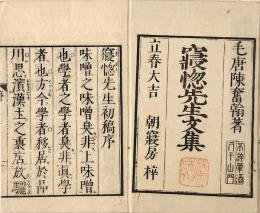 毛唐陳奮翰著
寢惚先生文集
立春大吉 朝寢房 梓
寢惚先生初稿序
味噌之味噌臭非上味噌
也學者之學者臭非眞學
者也方今學者移居於品
川思